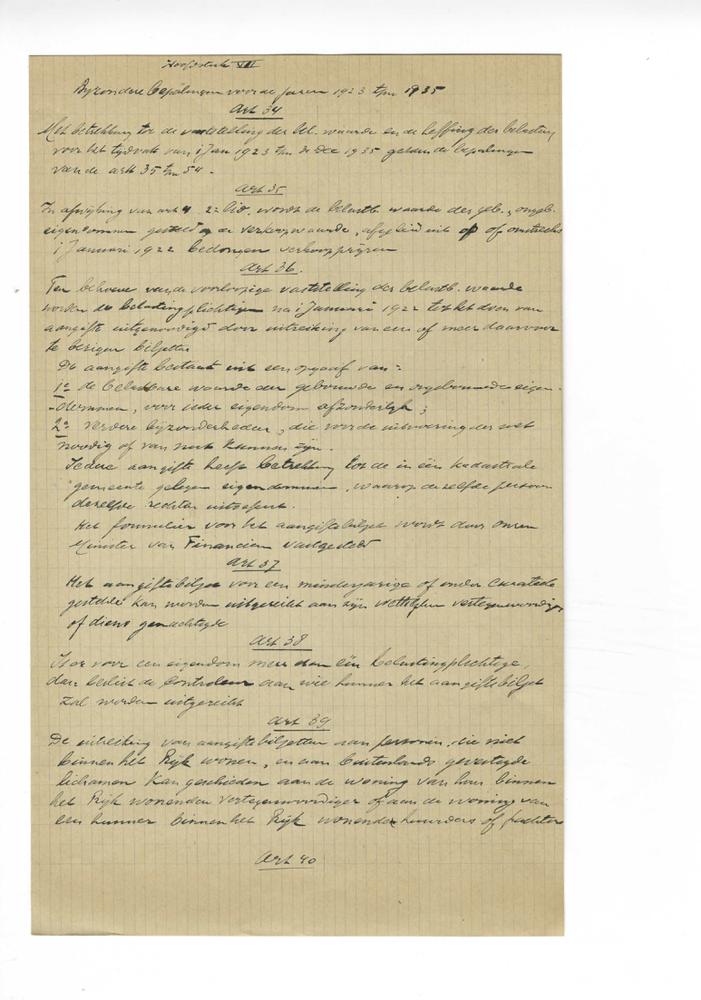 Hoofdstuk VIII
Byzondere bepalingen voor de jaren 1923 t/m 1935
Art 34
Met betrekking tot de vaststelling der bel. waarde en de heffing der belasting
voor het tijdvak van 1 Jan 1923 t/m 31 Dec 1935 gelden de bepalingen
van de artt 35 t/m 54.
Art 35
In afwijking van art 4 22 bis. wordt de belastb. waarde der geb., ongeb.
eigendommen gesteld op de verkoopwaarde, afgeleid uit op of omstreeks
1 Januari 1922 bedongen verkoopprijzen
Art 36.
Ten behoeve van de voorloopige vaststelling der belastb. waarde
worden de belastingplichtigen na 1 Januari 1922 tot het doen van
aangifte uitgenoodigd door uitreiking van een of meer daarvoor
te bezigen biljetten
De aangifte bestaat uit een opgaaf van:
1o de belastbare waarde der gebouwde en ongebouwde eigen-
-dommen, voor ieder eigendom afzonderlijk;
2o verdere bijzonderheden, die voor de uitvoering der wet
noodig of van nut kunnen zijn.
Iedere aangifte heeft betrekking tot de in één kadastrale
gemeente gelegen eigendommen, waarop dezelfde persoon
dezelfde rechten uitoefent.
Het formulier voor het aangiftebiljet wordt door onzen
Minister van Financien vastgesteld
Art 37
Het aangiftebiljet voor een minderjarige of onder curateele
gestelde kan worden uitgereikt aan zijn wettelijken vertegenwoordiger
of diens gemachtigde
Art 38
Is er voor een eigendom meer dan één belastingplichtige,
dan beslist de Controleur aan wie hunner het aangiftebiljet
zal worden uitgereikt
Art 39
De uitreiking van aangiftebiljetten aan personen, die niet
binnen het Rijk wonen, en aan buitenlands gevestigde
lichamen kan geschieden aan de woning van hun binnen
het Rijk wonenden vertegenwoordiger of aan de woning van
een hunner binnen het Rijk wonende huurders of pachters
Art 40